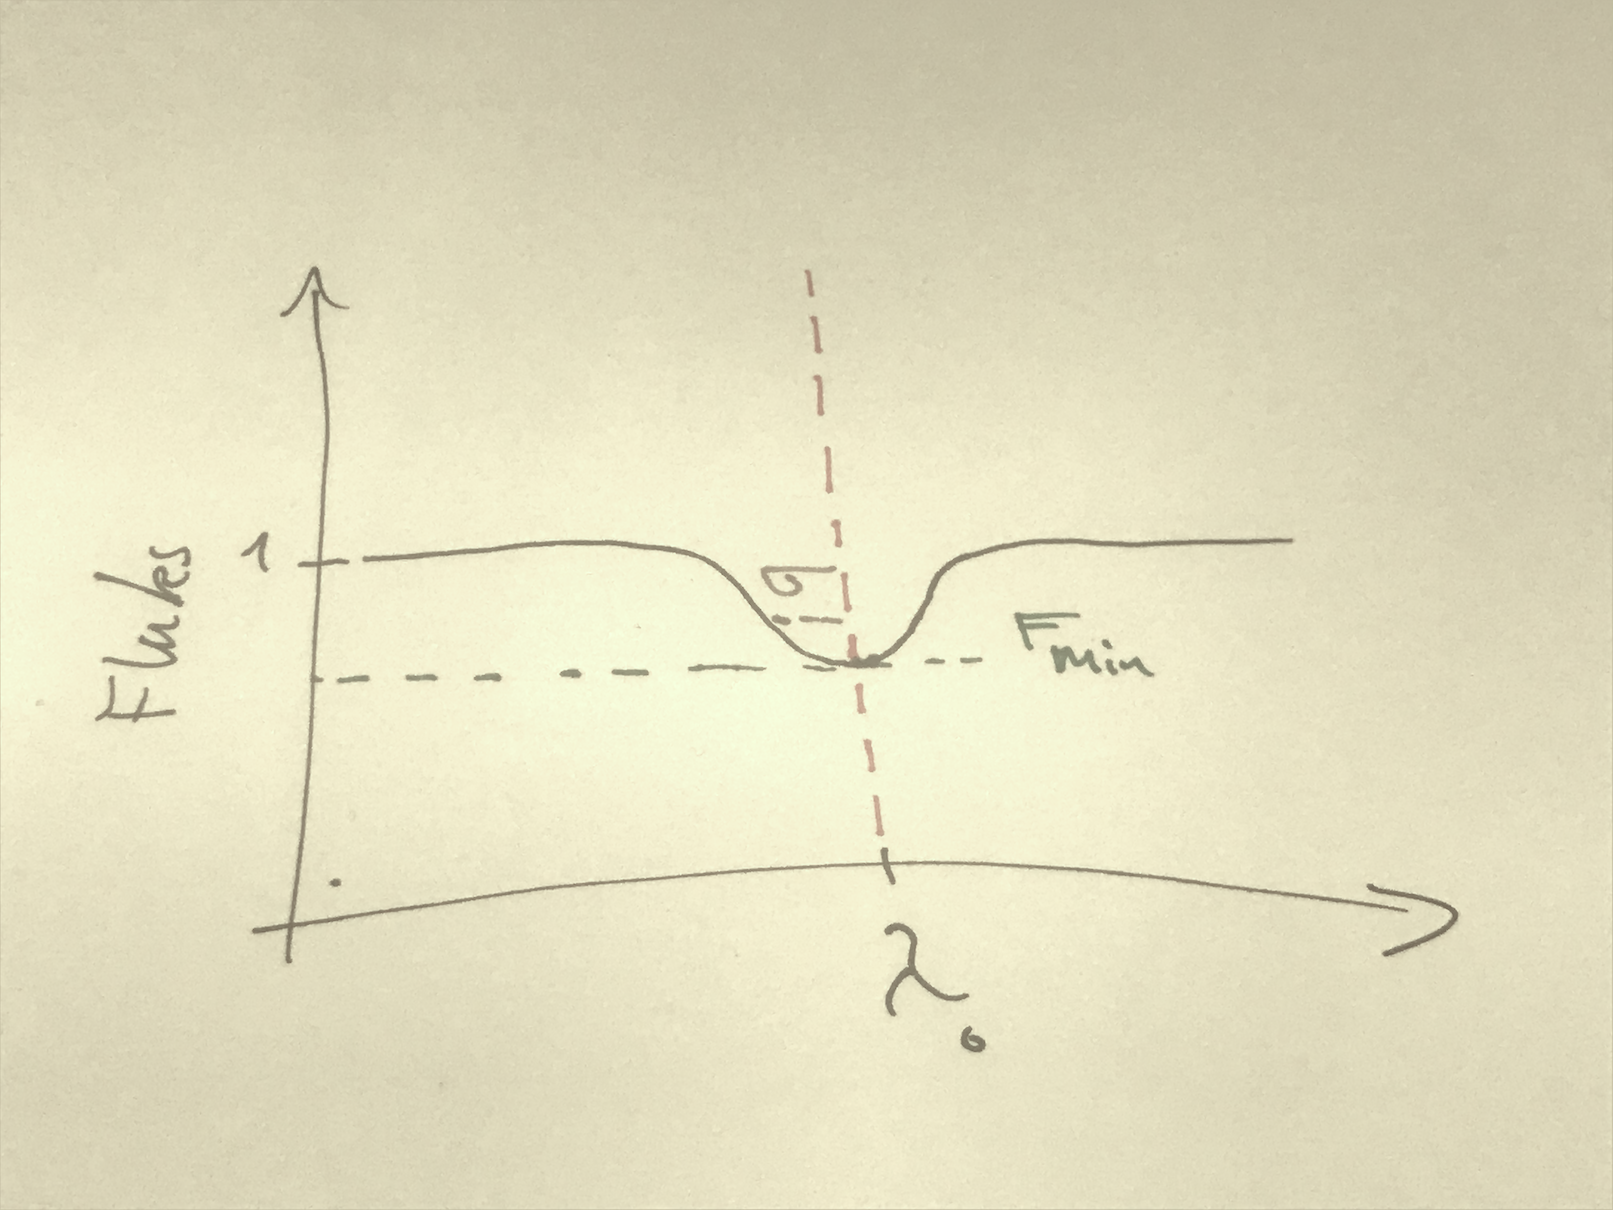 Fluks
1
σ
Fmin
λ₀